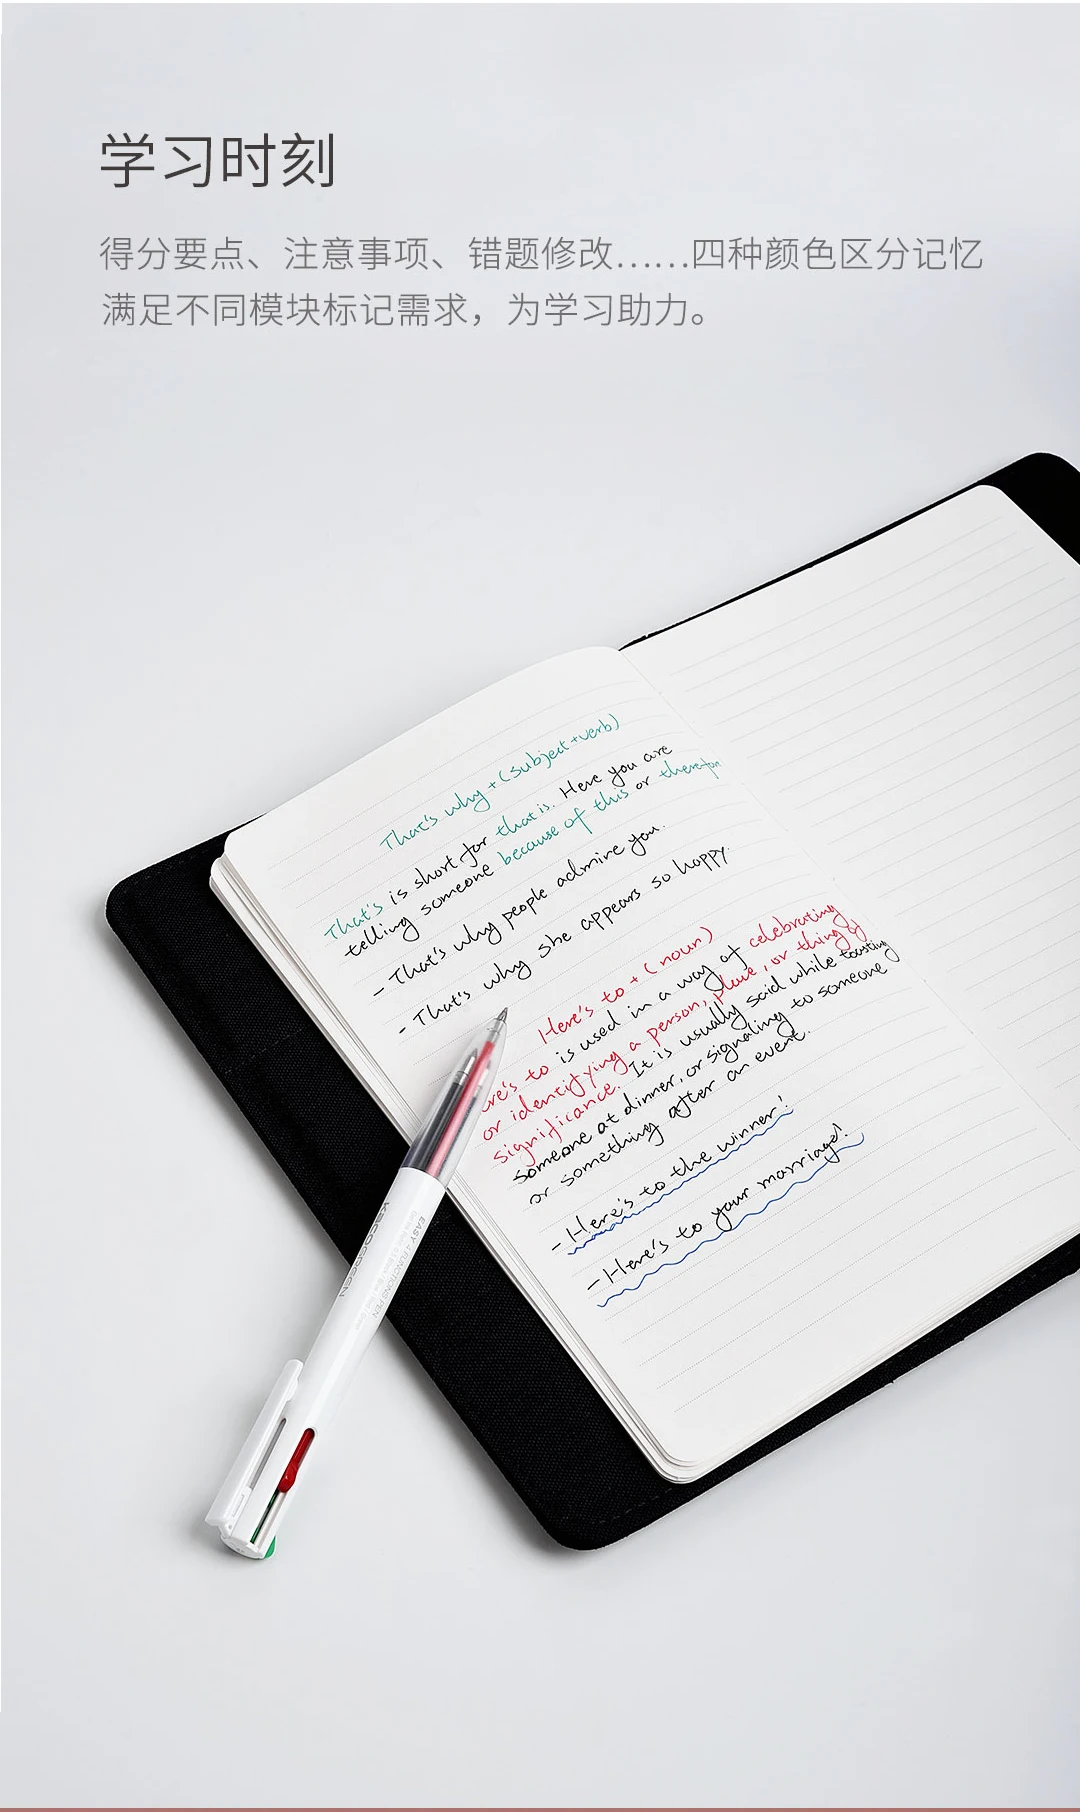 学习时刻
得分要点、注意事项、错题修改……四种颜色区分记忆
满足不同模块标记需求，为学习助力。
That's why + (subject + verb)
That's is short for that is. Here you are
telling someone because of this or therefor
- That's why people admire you.
- That's why she appears so happy.
Here's to + ( noun )
ere's to is used in a way of celebrating
or identifying a person, place, or thing of
significance. It is usually said while toasting
someone at dinner, or signaling to someone
or something after an event.
- Here's to the winner!
- Here's to your marriage!
KACOGREEN
EASY 4 FUNCTIONS PEN